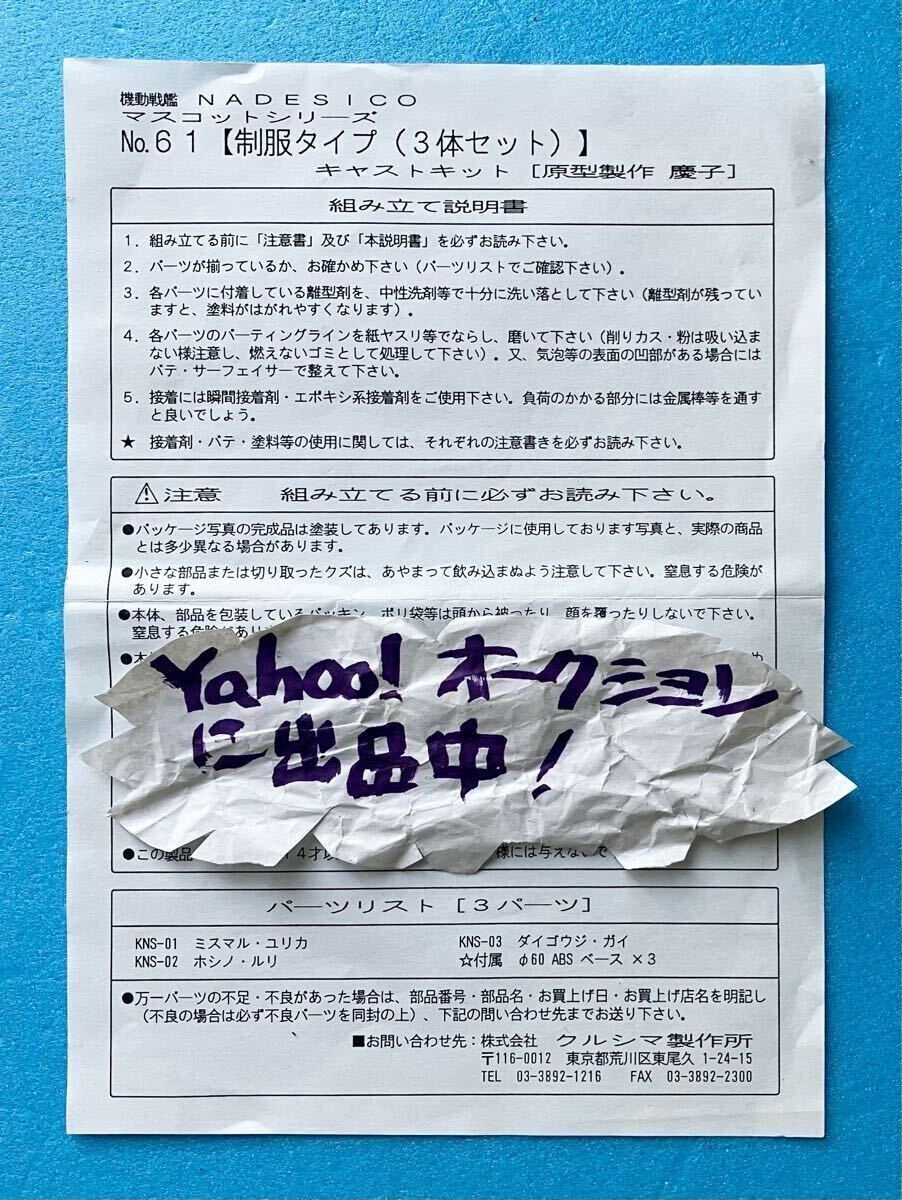 機動戦艦 NADESICO
マスコットシリーズ
No.61【制服タイプ(3体セット)】
キャストキット [原型製作 慶子]
組み立て説明書
1. 組み立てる前に「注意書」及び「本説明書」を必ずお読み下さい。
2. パーツが揃っているか、お確かめ下さい(パーツリストでご確認下さい)。
3. 各パーツに付着している離型剤を、中性洗剤等で十分に洗い落として下さい(離型剤が残ってい
ますと、塗料がはがれやすくなります)。
4. 各パーツのパーティングラインを紙ヤスリ等でならし、磨いて下さい(削りカス・粉は吸い込ま
ない様注意し、燃えないゴミとして処理して下さい)。又、気泡等の表面の凹部がある場合には
パテ・サーフェイサーで整えて下さい。
5. 接着には瞬間接着剤・エポキシ系接着剤をご使用下さい。負荷のかかる部分には金属棒等を通す
と良いでしょう。
★ 接着剤・パテ・塗料等の使用に関しては、それぞれの注意書きを必ずお読み下さい。
⚠注意 組み立てる前に必ずお読み下さい。
●パッケージ写真の完成品は塗装してあります。パッケージに使用しております写真と、実際の商品
とは多少異なる場合があります。
●小さな部品または切り取ったクズは、あやまって飲み込まぬよう注意して下さい。窒息する危険が
あります。
●本体、部品を包装しているパッキン、ポリ袋等は頭から被ったり、顔を覆ったりしないで下さい。
窒息する危険があり
Yahoo! オークション
に出品中!
●この製品 14才以 様には与えないで
パーツリスト [3パーツ]
KNS-01 ミスマル・ユリカ
KNS-02 ホシノ・ルリ
KNS-03 ダイゴウジ・ガイ
☆付属 φ60 ABS ベース ×3
●万一パーツの不足・不良があった場合は、部品番号・部品名・お買上げ日・お買上げ店名を明記し
(不良の場合は必ず不良パーツを同封の上)、下記の問い合わせ先までお送り下さい。
■お問い合わせ先:株式会社 クルシマ製作所
〒116-0012 東京都荒川区東尾久 1-24-15
TEL 03-3892-1216 FAX 03-3892-2300